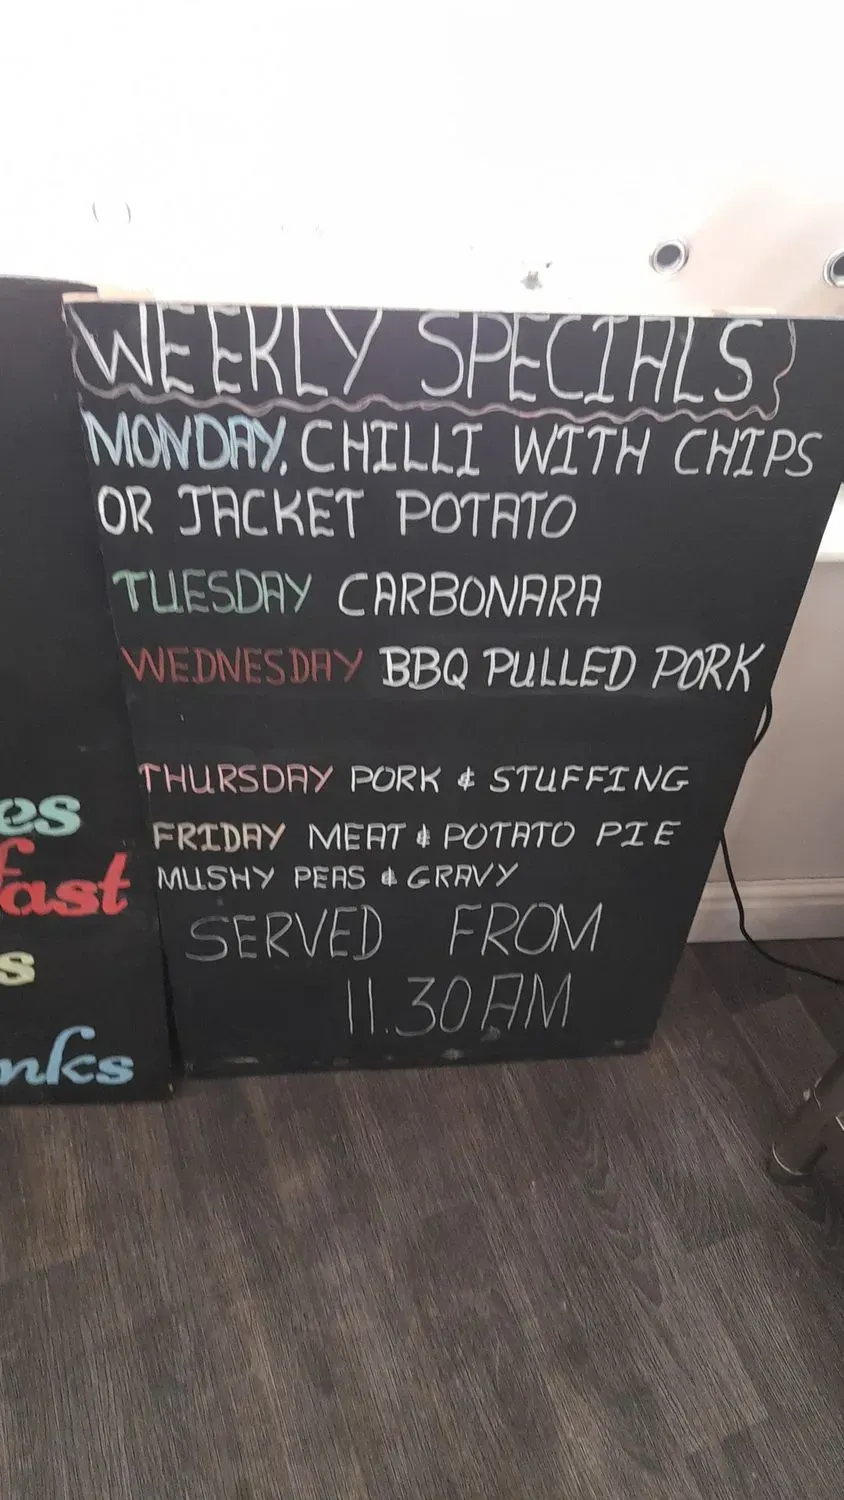 WEEKLY SPECIALS
MONDAY. CHILLI WITH CHIPS
OR JACKET POTATO
TUESDAY CARBONARA
WEDNESDAY BBQ PULLED PORK
THURSDAY PORK & STUFFING
FRIDAY MEAT & POTATO PIE
MUSHY PEAS & GRAVY
SERVED FROM
11.30AM
es
fast
s
nks